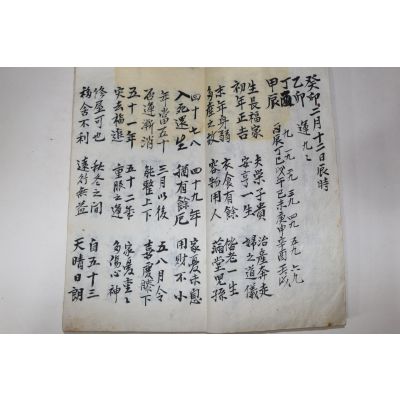 癸卯二月十二日辰時
乙卯 運九々
丁酉 九 一九 二九 三九 四九 五九 六九
甲辰 丙辰 丁巳 戊午 己未 庚申 辛酉 壬戌
生長福家 夫榮子貴 治産奔走
初年正吉 安享一生 婦之道儀
末年身弱 衣食有餘 偕老一生
多産之故 容物用人 滿堂児孫
四十七八 四十九年 家憂不息
入死還生 猶有餘厄 用財不小
年當五十 三月以後 五八月令
厄運漸消 能整上下 喜慶膝下
五十一年 五十二季 家憂
突去福進 重服之運 多傷心神
修屋可也 秋冬之間 自五十三
移舍不利 遠行無益 天晴日朗